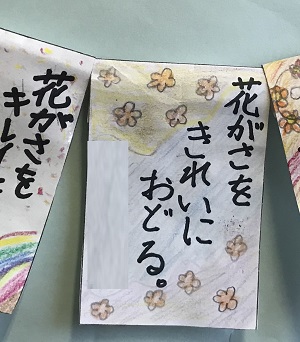 花がさを
きれいに
おどる。
花がさを
キレイ